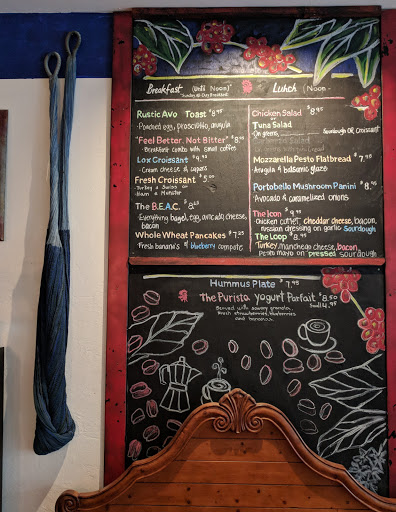 Breakfast (until Noon)
Sunday All-Day Breakfast
Rustic Avo Toast $8.95
- Poached egg, prosciutto, arugula
"Feel Better. Not Bitter" $8
- Breakfast combo with small coffee
Lox Croissant $9.90
- Cream cheese & capers
Fresh Croissant $5.00
- Turkey & Swiss or
Ham & Monster
The B.E.A.C. $8.25
- Everything bagel, egg, avocado, cheese,
bacon
Whole Wheat Pancakes $7.25
- Fresh banana's & blueberry compote
Lunch (Noon -
Chicken Salad $8.95
Tuna Salad
- On greens, Sourdough OR Croissant
Mozzarella Pesto Flatbread $7.90
Arugula & balsamic glaze
Portobello Mushroom Panini $8.95
Avocado & caramelized onions
The Icon $9
Chicken cutlet, cheddar cheese, bacon,
russian dressing on garlic Sourdough
The Loop $8.95
Turkey, manchego cheese, bacon,
Pesto mayo on pressed sourdough
Hummus Plate $7.95
The Purista Yogurt Parfait $8.50
Small 4.95
Served with savory granola,
Fresh strawberries, blueberries
and bananas